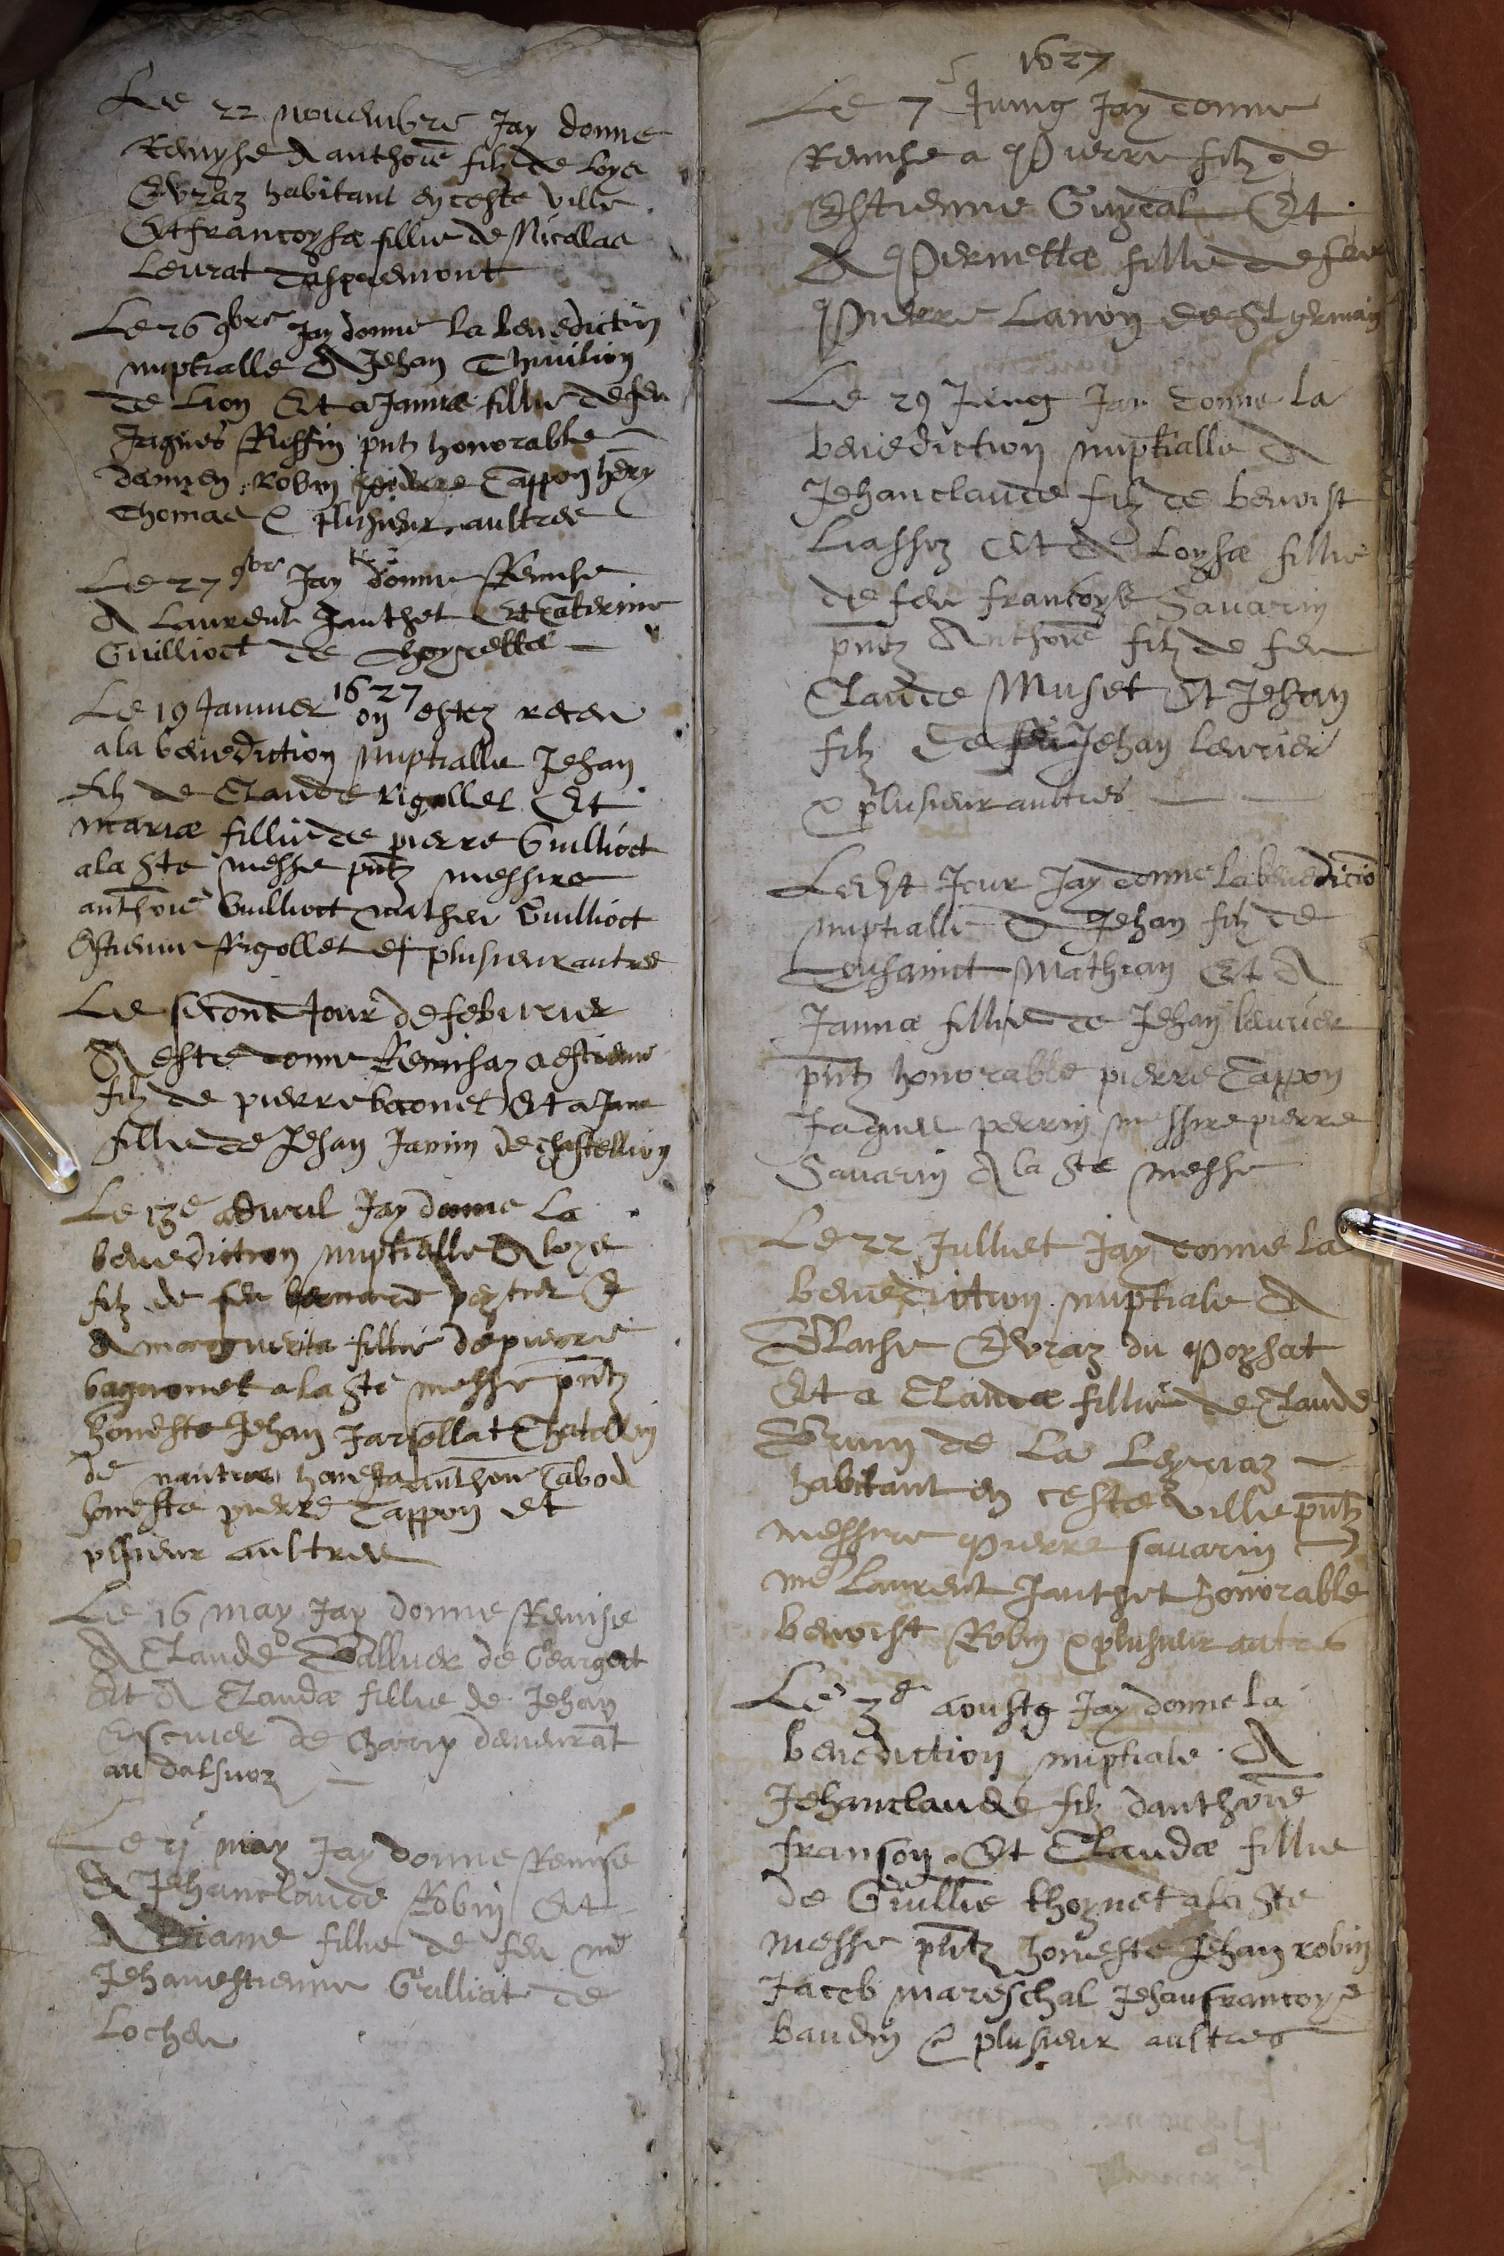 Le 22 novembre Jay donne
Remyse A anthoie filz de Loys
Evraz habitant en ceste ville
Et francoysa fillie de Nicolas
Leurat daspremont
Le 26 9bre Jay donne la benediction
nuptialle A Jehan
de Lion Et a Janna fillie de feu
Jaques Ruffin pntz honorable
damien Robin pierre Tappon hery
Thomas & plusieur aultres
Le 27 9bre Jay donne Remise
A Laurent Janthet Et Caterine
Guilliot de
Le 19 Janvier 1627 on estez receu
a la benediction nuptialle Jehan
filz de Claude rigollet Et
maria fillie de pierre Guilliot
a la Ste messe pntz messire
anthoie Guilliot mathieu Guilliot
Estienne Rigollet et plusieur autres
Le second Jour de feburier
A este donne Remisaz a estienne
filz de pierre Et a Jane
fillie de Jehan Janin de chastellion
Le 13e Avril Jay donne La
benediction nuptialle A loys
filz de feu bernard &
A marguerita fillie de pierre
a la Ste messe pntz
honeste Jehan Jarsollat Chatellin
de nantua honeste anthoie Cabod
honeste pierre Tappon et
plsieur aultres
Le 16 may Jay donne Remise
A Claude de
Et A Clauda fillie de Jehan
de Charix demeurat
au
Le may Jay donne Remise
A Jehanclaude Robin Et
A Diane fillie de feu me
Jehanestienne Guilliot de
Lochieu
1627
Le 7 Juing Jay donne
Remise a Pierre filz de
Estienne Et
A Pernetta fillie de feu
Pierre Lanoy de St germain
Le 29 Juing Jay donne la
benediction nuptialle A
Jehanclaude filz de benoist
Liassoz Et A Loysa fillie
de feu francoys Savarin
pntz Anthoie filz de feu
Claude Muset Et Jehan
filz de feu Jehan levrier
& plusieur aultres
Led St Jour Jay donne la benedicio
nuptialle A Jehan filz de
Tousainct Mathian Et A
Janna fillie de Jehan levrier
pntz honorable pierre Tappon
Jaques perrin messire pierre
Savarin A la Ste messe
Le 22 Julliet Jay donne la
benediction nuptiale A
Blaise Evraz du Poyzat
Et a Clauda fillie de Claude
Brun de La Leyriaz
habitant en ceste ville pntz
messire Pierre savarin
me Laurent Janthet honorable
benoist Robin & plusieur autres
Le 3e aoustg Jay donne la
benediction nuptiale A
Jehanclaude filz danthoie
franson Et Clauda fillie
de Guillie thoznet a la Ste
messe pntz honeste Jehan robin
Jacob mareschal Jehanfrancoys
baudin & plusieur aultres